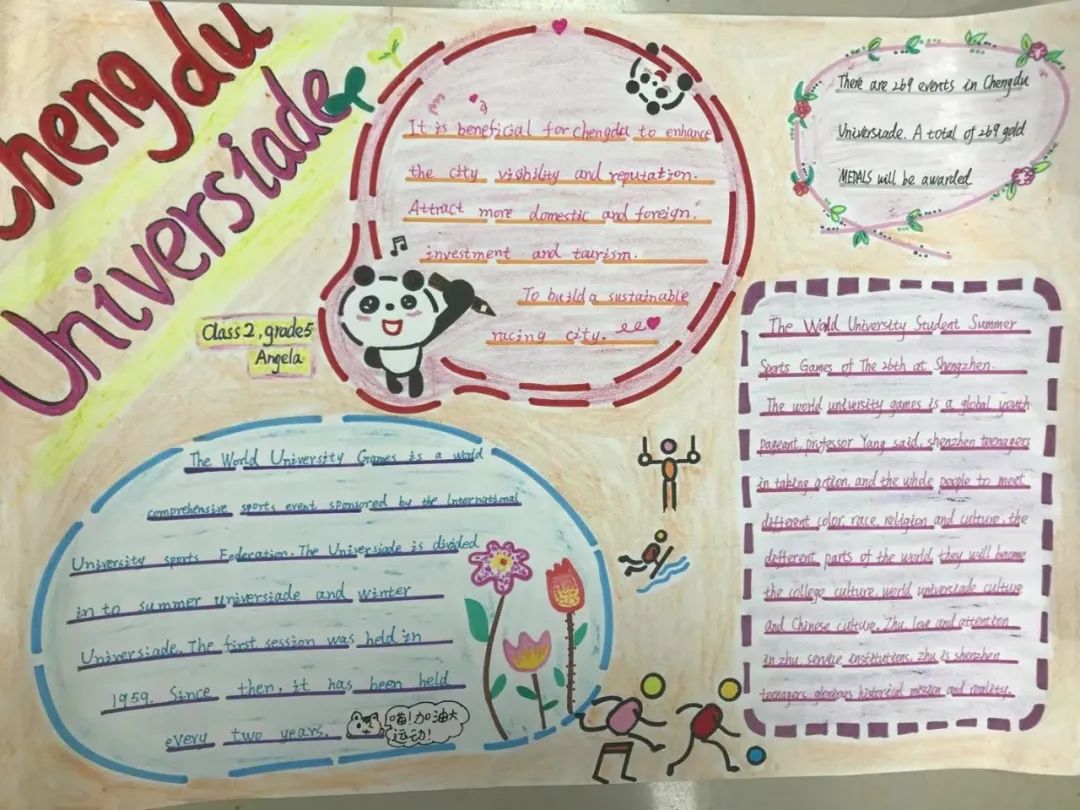 Chengdu
Universiade
Class 2, grade5
Angela
It is beneficial for Chengdu to enhance
the city visibility and reputation.
Attract more domestic and foreign.
investment and tourism.
To build a sustainable
racing city.
There are 269 events in Chengdu
Universiade. A total of 269 gold
MEDALS will be awarded
The World University Games is a world
comprehensive sports event sponsored by the International
University sports Federation. The Universiade is divided
in to summer universiade and winter
Universiade. The first session was held in
1959. Since then, it has been held
every two years.
喵!加油大
运动!
The World University Student Summer
Sports Games of The 26th at Shengzhen.
The world university games is a global youth
pageant, professor Yang said, shenzhen teenagers
in taking action, and the whole people to meet
different color, race, religion and culture, the
different parts of the world, they will become
the college culture, world universiade culture
and Chinese culture. Zhu, love and attention
in zhu service institutions, zhu is shenzhen
teenagers glorious historical mission and reality.